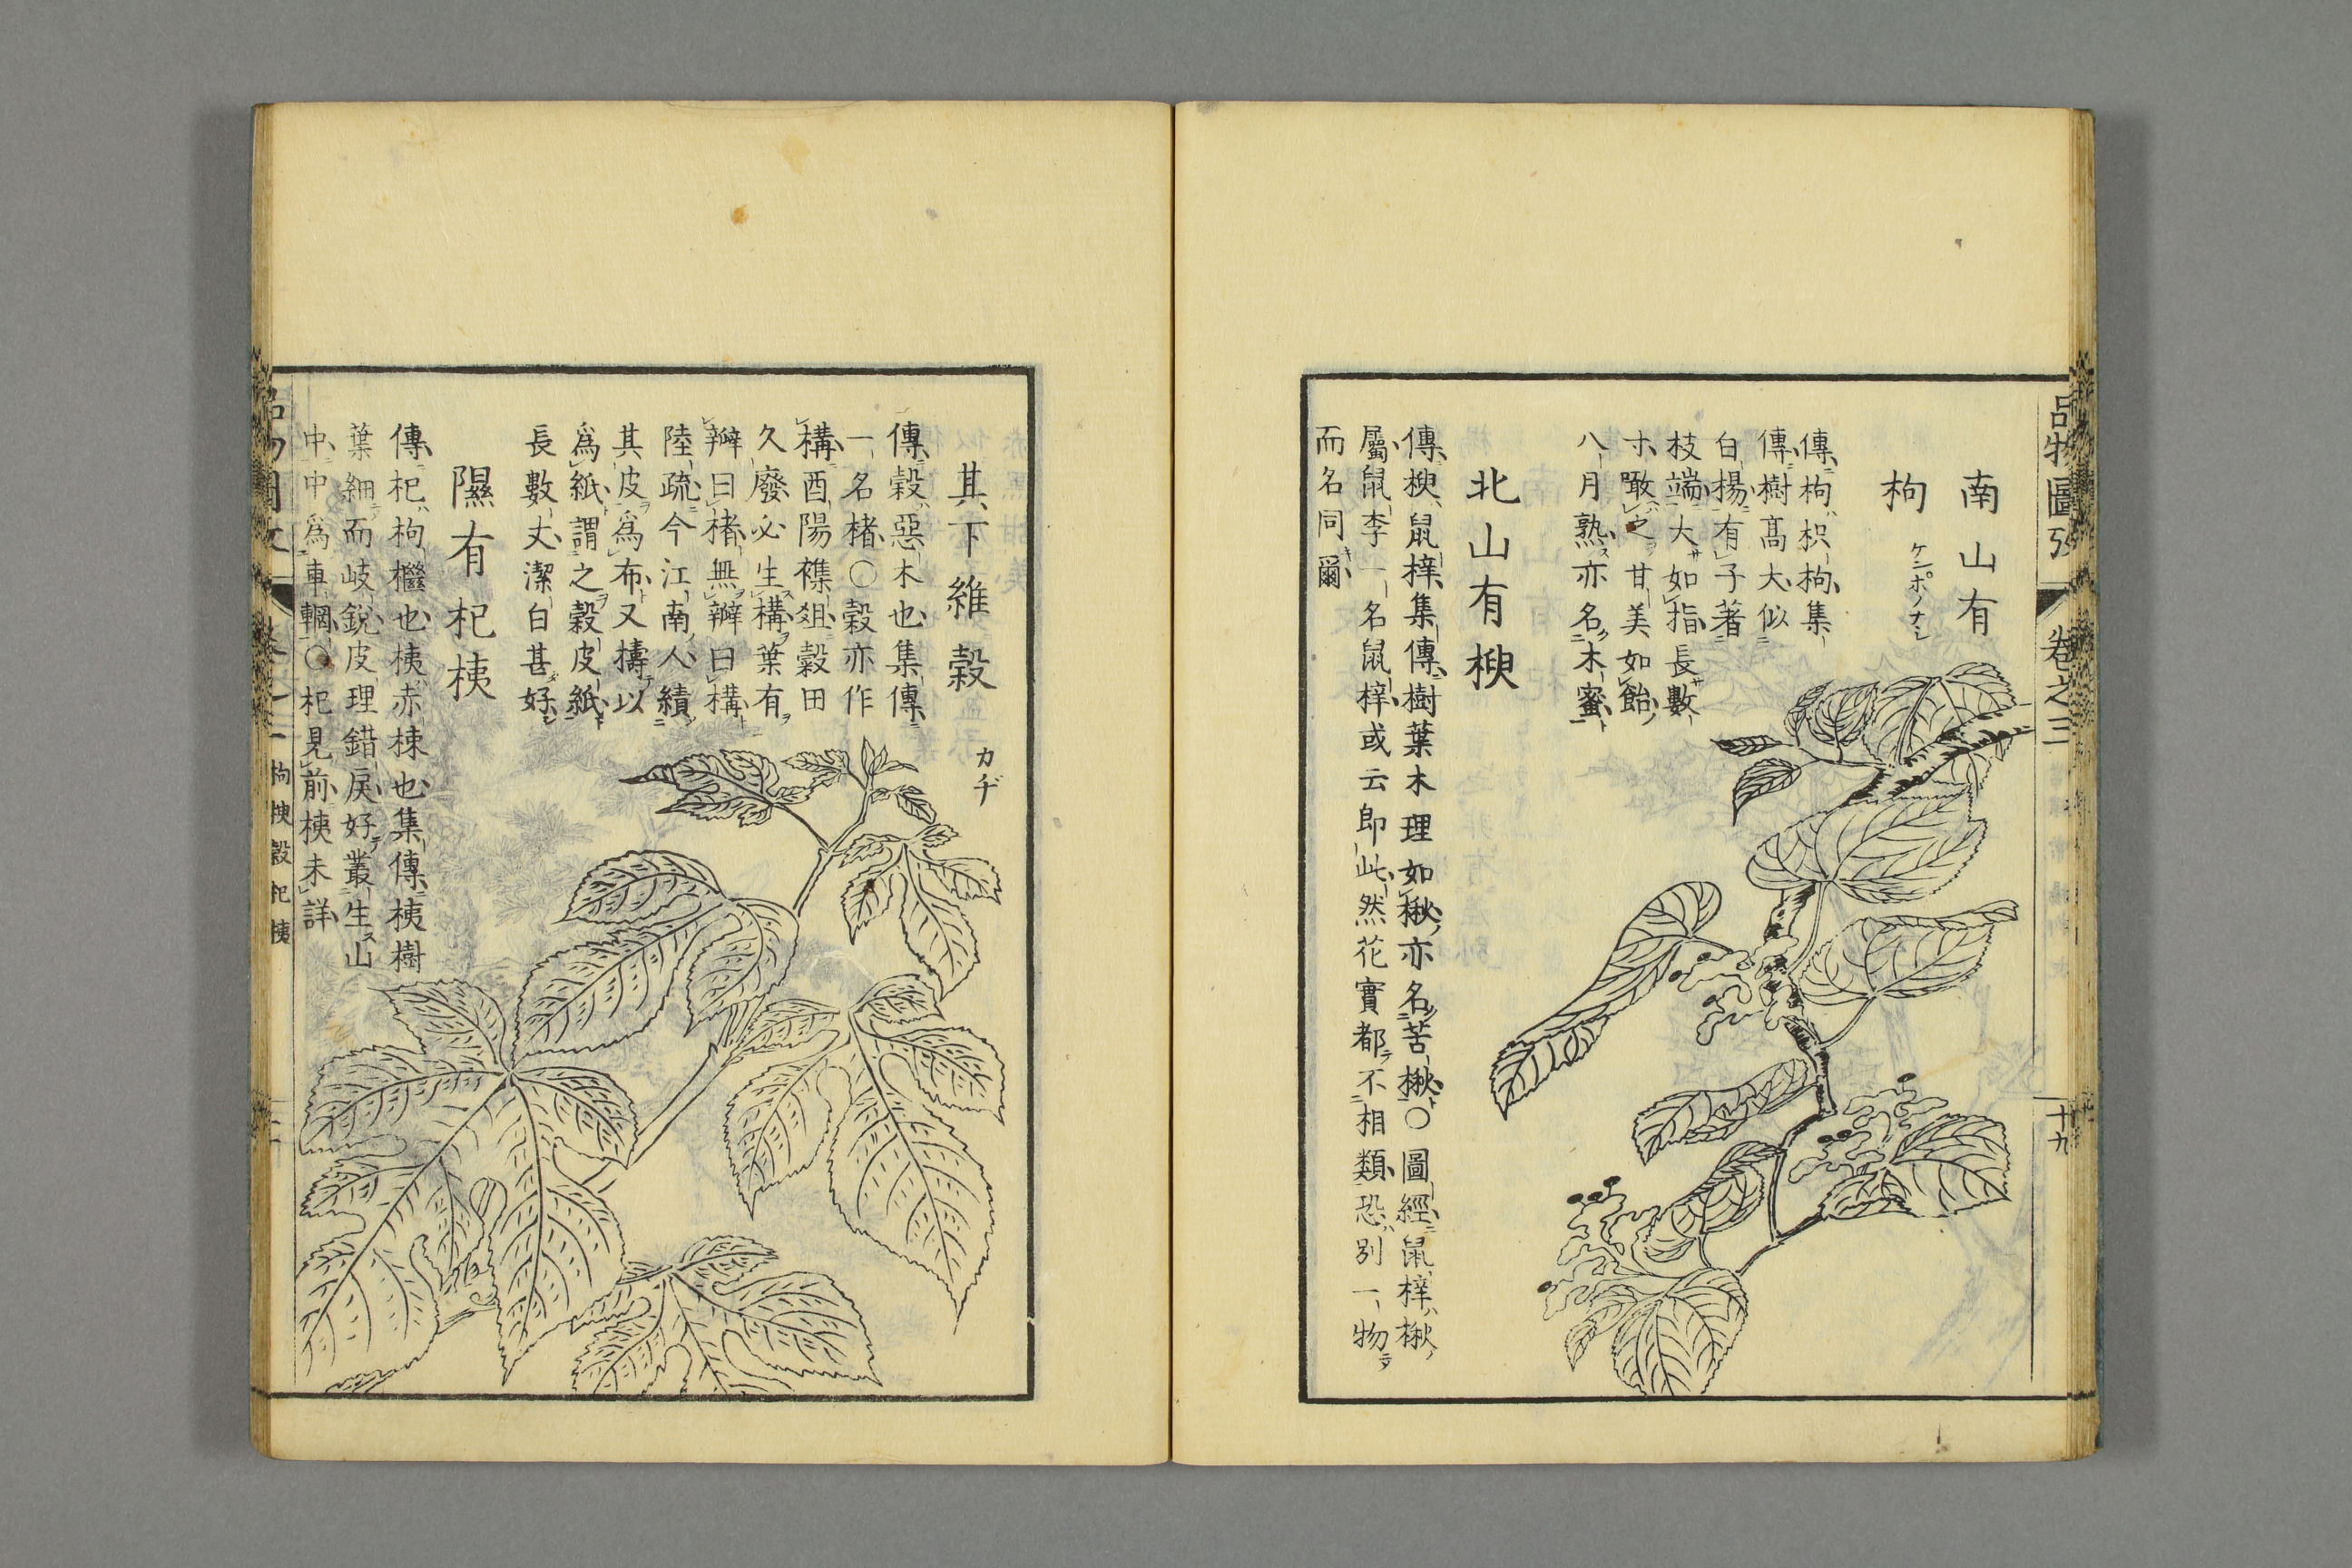 品物圖攷
卷之三
十九
南山有
枸
ケンポノナシ
傳枸枳枸集
傳樹髙大似
白楊有子著
枝端大サ如指長サ數
寸噉之甘美如飴
八月熟ス亦名木蜜
北山有楰
傳楰鼠梓集傳樹葉木理如楸亦名苦楸○圖經鼠梓楸ノ
屬鼠李一名鼠梓或云即此然花實都テ不相類恐別一物ニテ
而名同キ爾
其下維榖
カヂ
傳榖惡木也集傳
一名楮○榖亦作
構酉陽襍俎榖田
久廢必生構葉有
瓣曰楮無瓣曰構
陸疏今江南人績
其皮爲布又擣以
爲紙謂之榖皮紙
長數丈潔白甚好
隰有杞桋
傳杞枸檵也桋赤栜也集傳桋樹
葉細而岐銳皮理錯戾好叢生ス山
中中爲車輞○杞見前桋未詳
枸楰榖杞桋